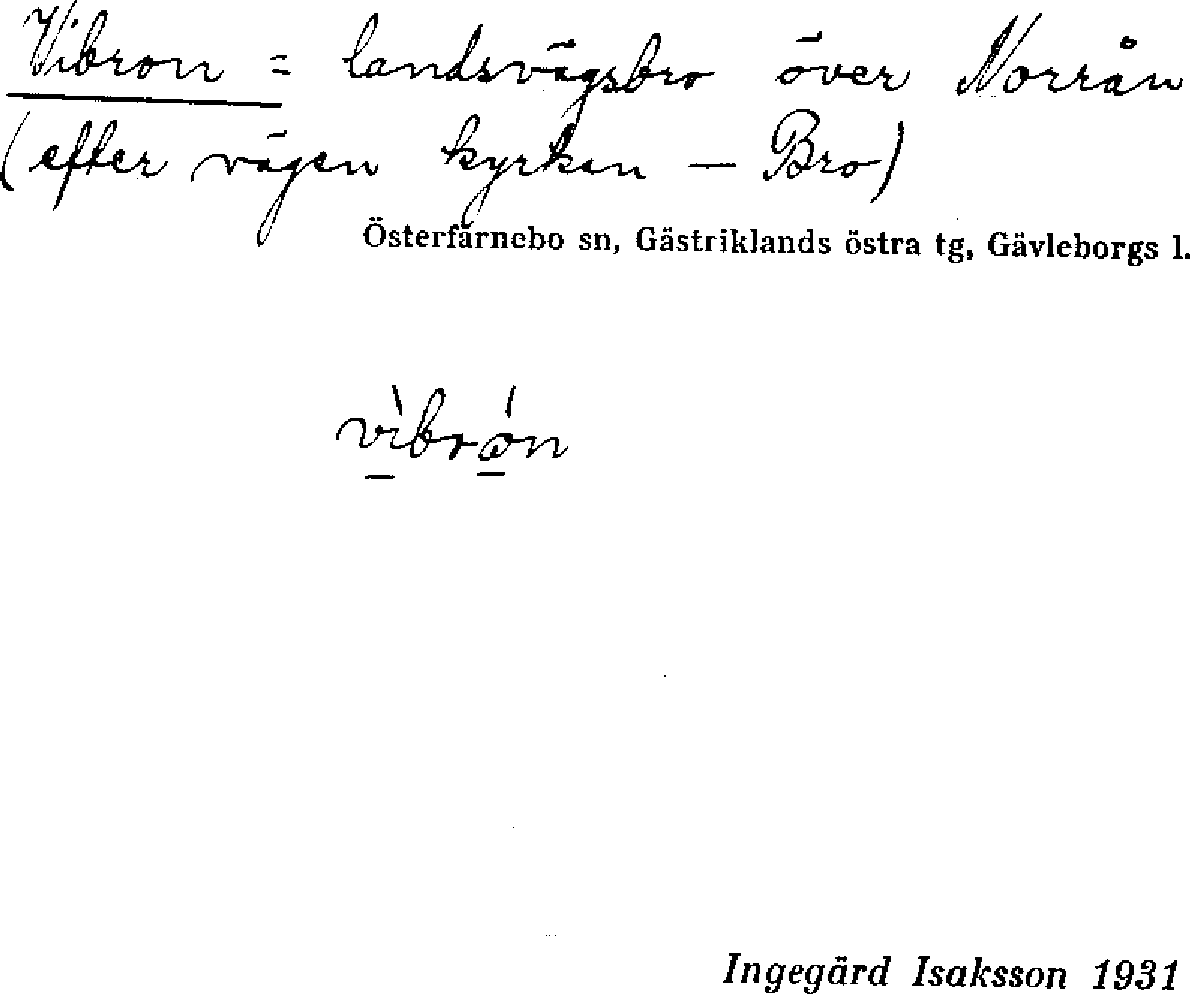 Vibron = landsvägsbro över Norrån
(efter vägen kyrkan – Bro)
Österfärnebo sn, Gästriklands östra tg, Gävleborgs l.
vìbrǿn
Ingegärd Isaksson 1931